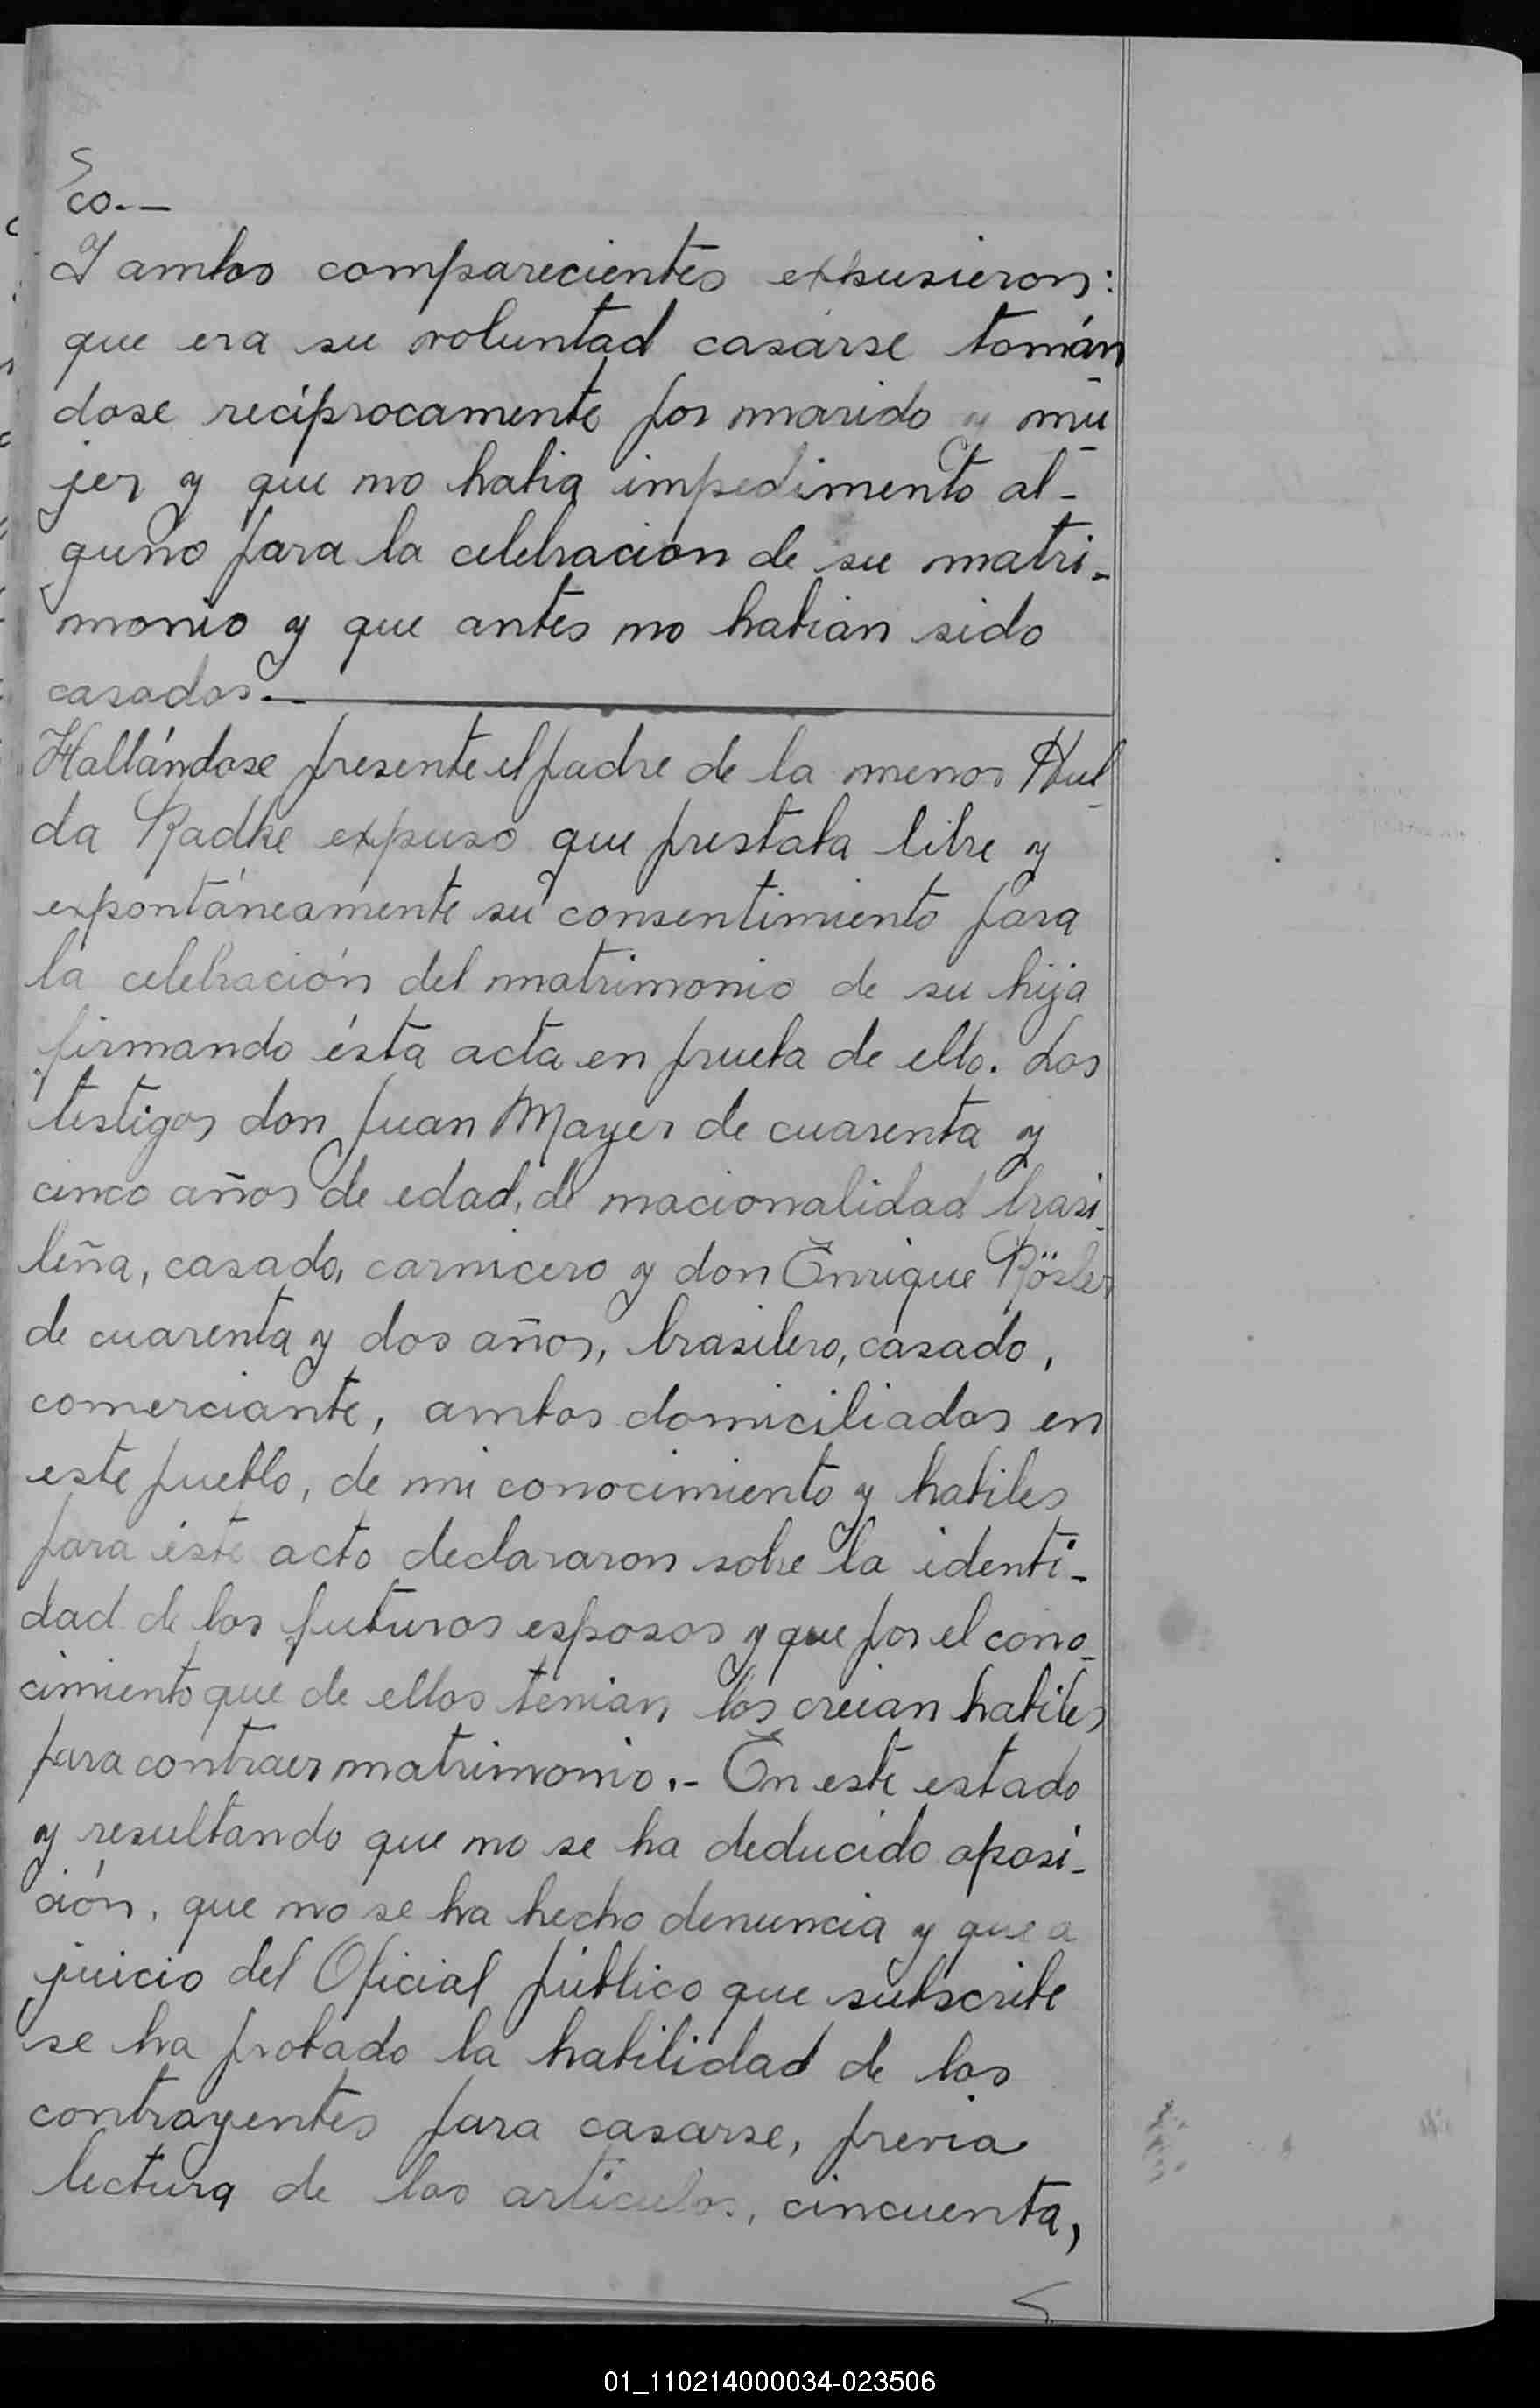 co.—
Y ambos comparecientes expusieron:
que era su voluntad casarse tomán
dose recíprocamente por marido y mu
jer y que no habia impedimento al-
guno para la celebracion de su matri-
monio y que antes no habian sido
casados.—
Hallándose presente el padre de la menor Hul
da Radke expuso que prestaba libre y
expontáneamente su consentimiento para
la celebración del matrimonio de su hija
firmando ésta acta en prueba de ello. Los
testigos don Juan Mayer de cuarenta y
cinco años de edad, de nacionalidad brasi-
leña, casado, carnicero y don Enrique Rösler
de cuarenta y dos años, brasilero, casado,
comerciante, ambos domiciliados en
este pueblo, de mi conocimiento y habiles
para éste acto declararon sobre la identi-
dad de los futuros esposos y que por el cono-
cimiento que de ellos tenian, los creian habiles
para contraer matrimonio.- En este estado
y resultando que no se ha deducido oposi-
ción, que no se ha hecho denuncia y que a
juicio del Oficial público que subscribe
se ha probado la habilidad de los
contrayentes para casarse, previa
lectura de los articulos, cincuenta,
01_110214000034-023506